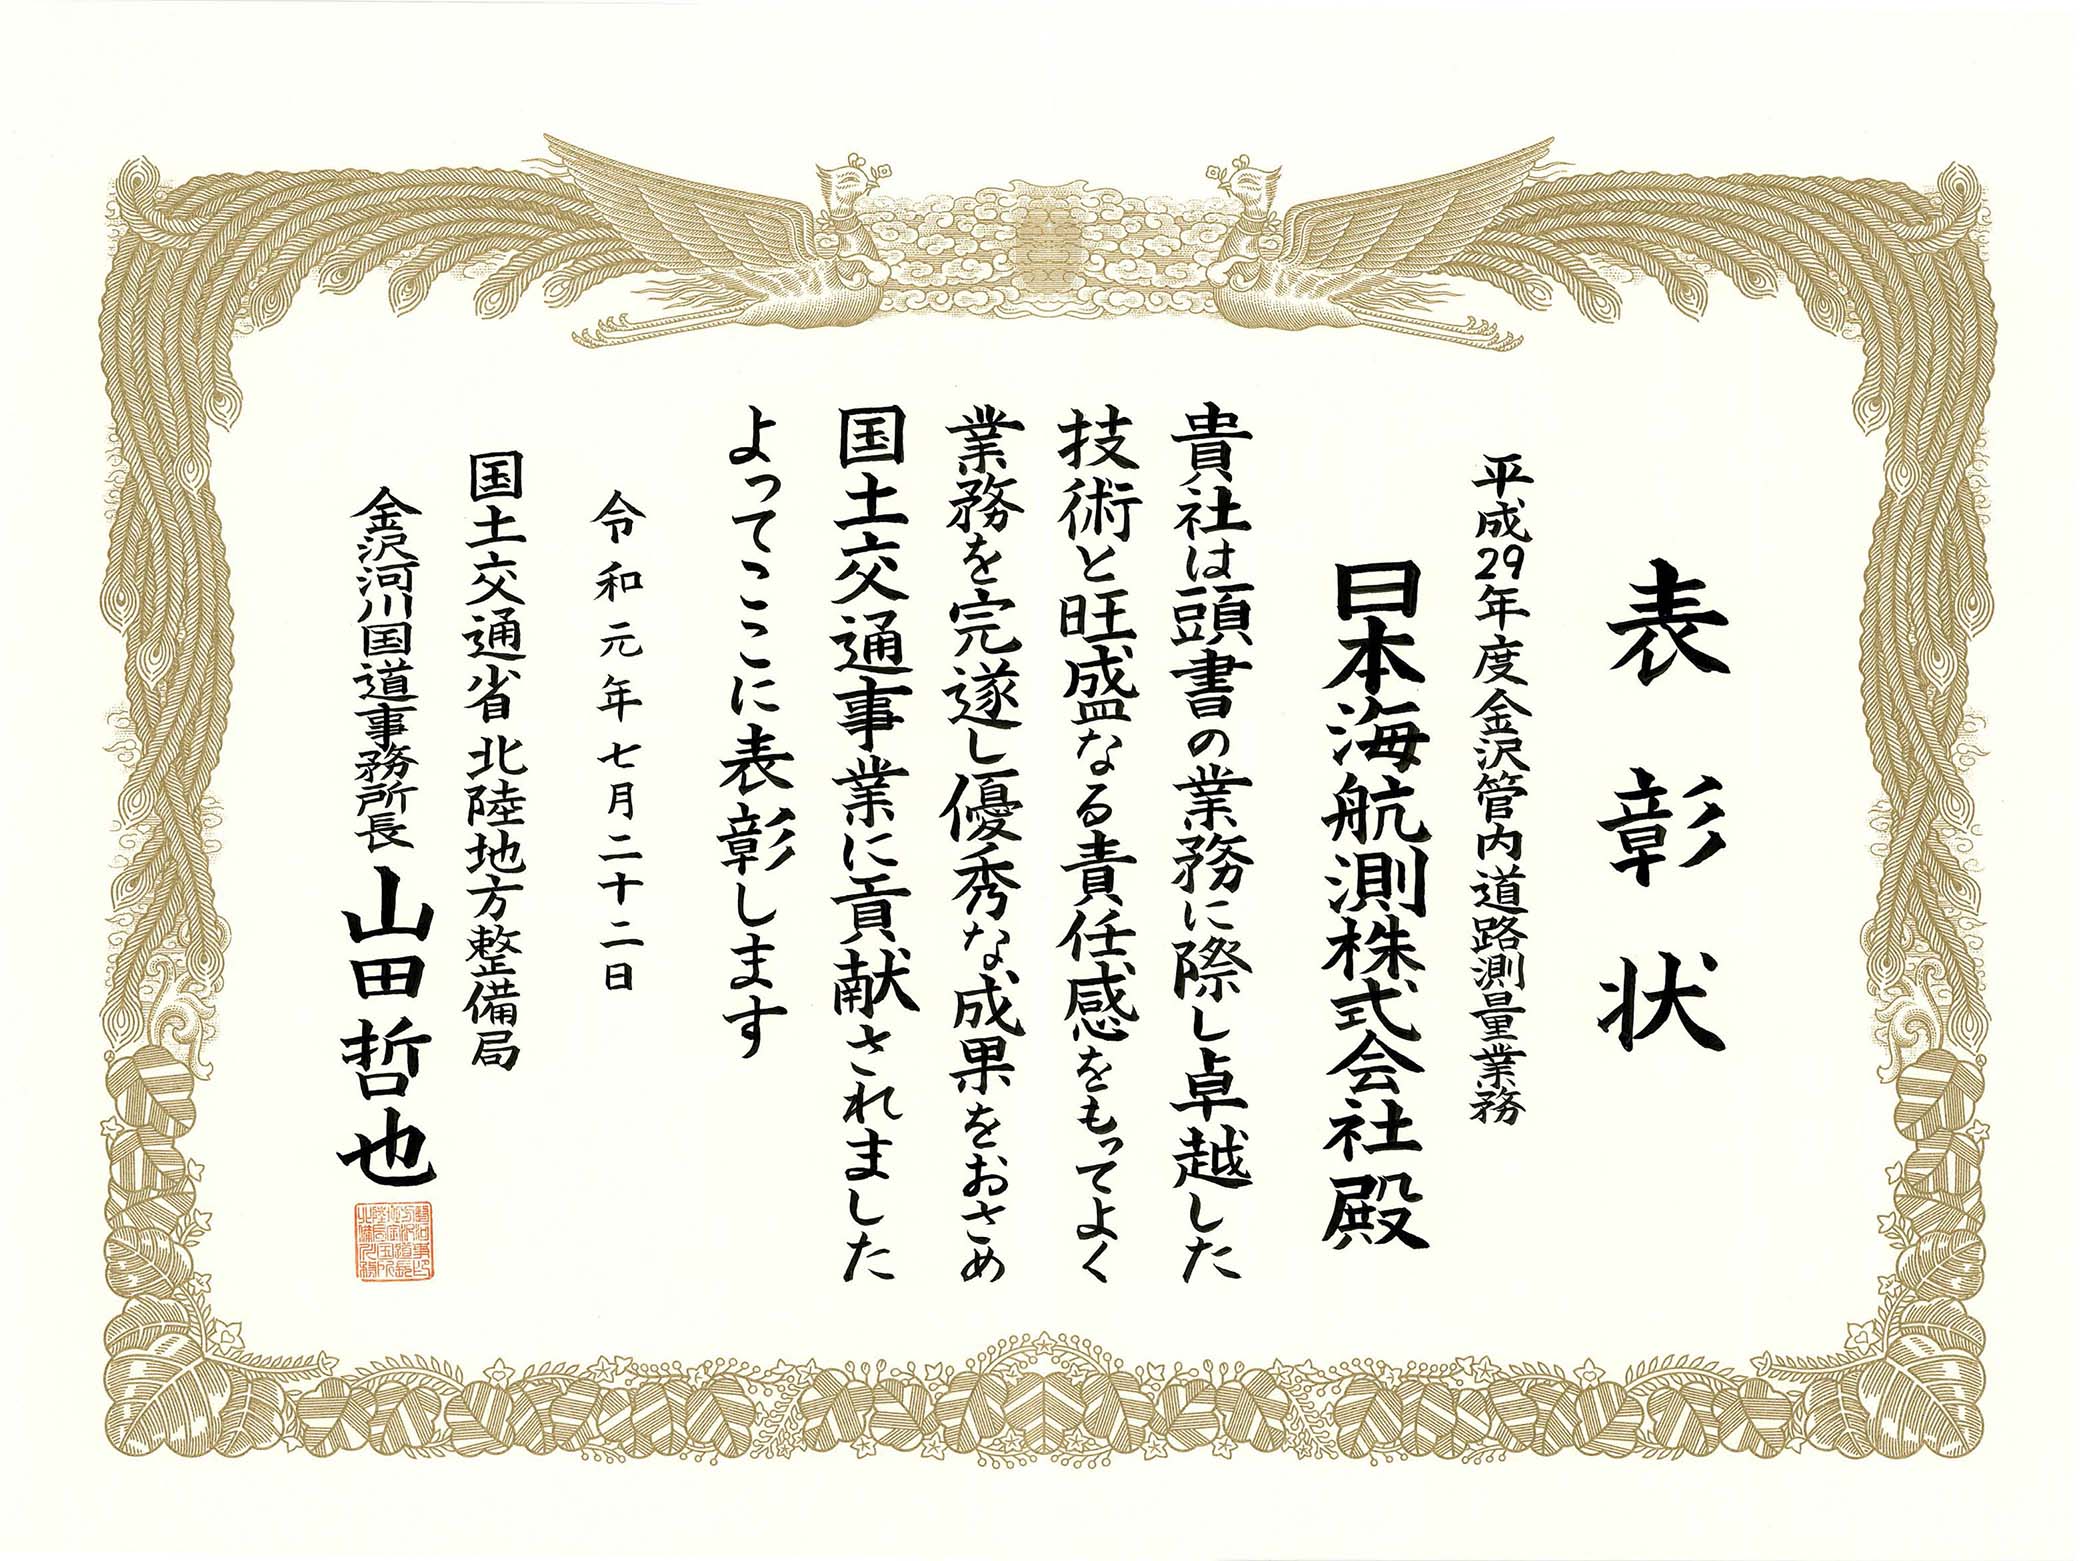 表彰状
平成29年度金沢管内道路測量業務
日本海航測株式会社殿
貴社は頭書の業務に際し卓越した
技術と旺盛なる責任感をもってよく
業務を完遂し優秀な成果をおさめ
国土交通事業に貢献されました
よってここに表彰します
令和元年七月二十二日
国土交通省北陸地方整備局
金沢河川国道事務所長 山田哲也